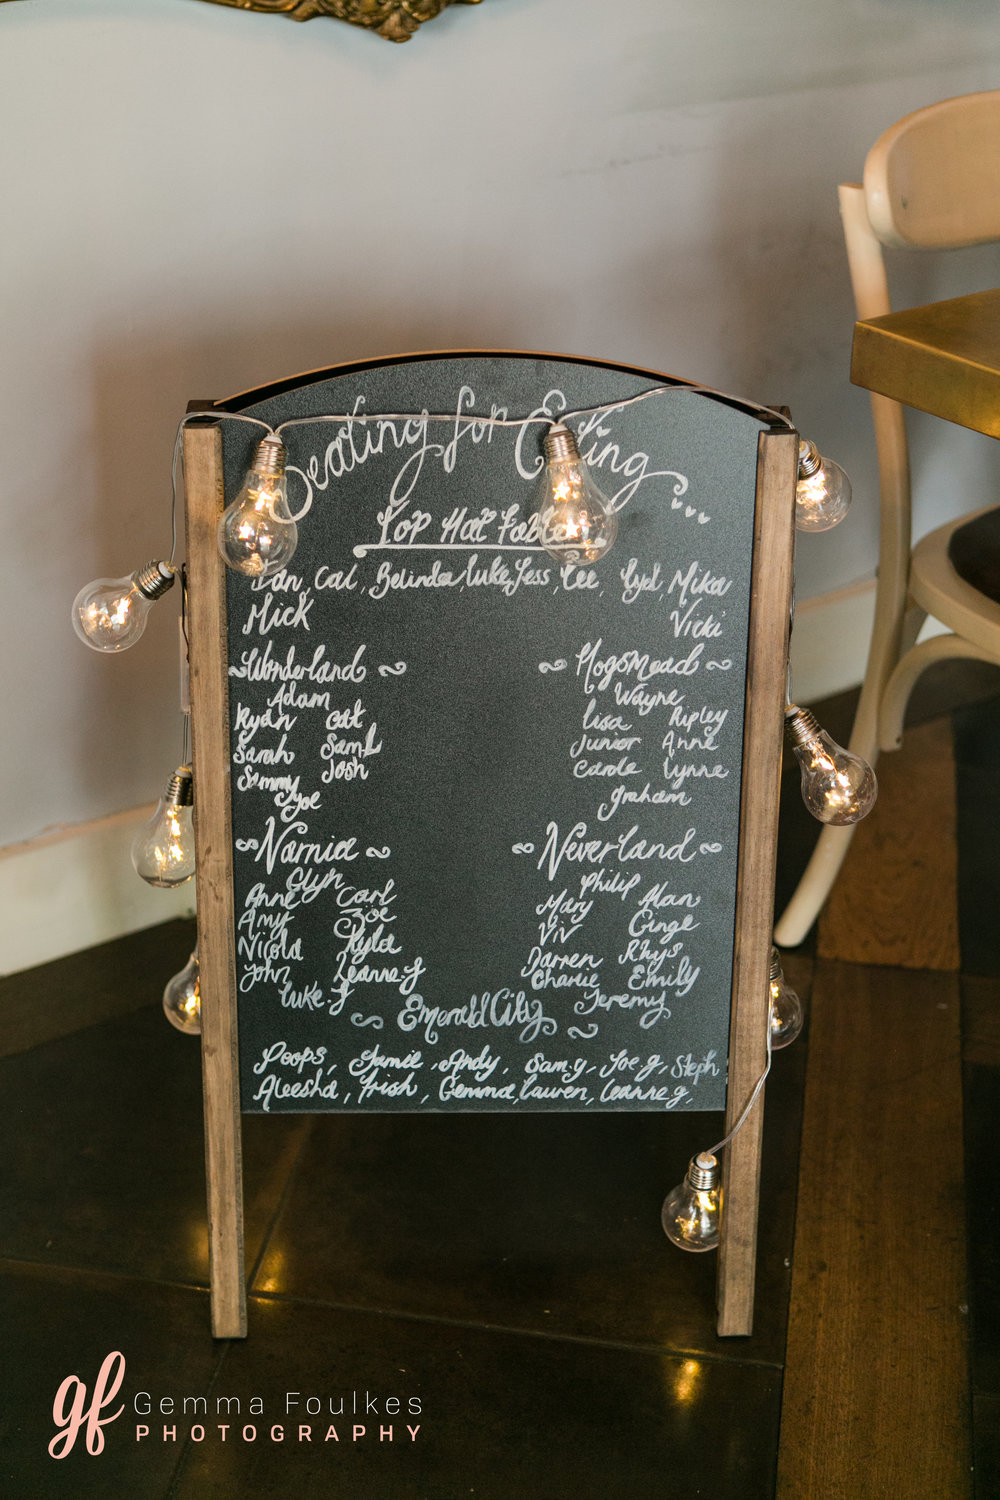 Seating for Eating...
Top Hat Table
Dan, Cal, Belinda, Luke, Jess, Lee, Lyd, Mika
Mick Vicki
~Wonderland~
Adam
Ryan Cat
Sarah Sam.L
Sammy Josh
Clyoe
~Hogsmead~
Wayne
Lisa Ripley
Junior Anne
Carole Lynne
Graham
~Narnia~
Glyn
Anne Carl
Amy Zoe
Nicola Kyla
John Leanne.J
Luke.J
~Neverland~
Philip
Mary Alan
Viv Ginge
Darren Rhys
Charlie Emily
Jeremy
~Emerald City~
Poops, Jamie, Andy, Sam.y, Joe.g, Steph
Aleesha, Trish, Gemma, Lauren, Leanne.g,
gf Gemma Foulkes
PHOTOGRAPHY